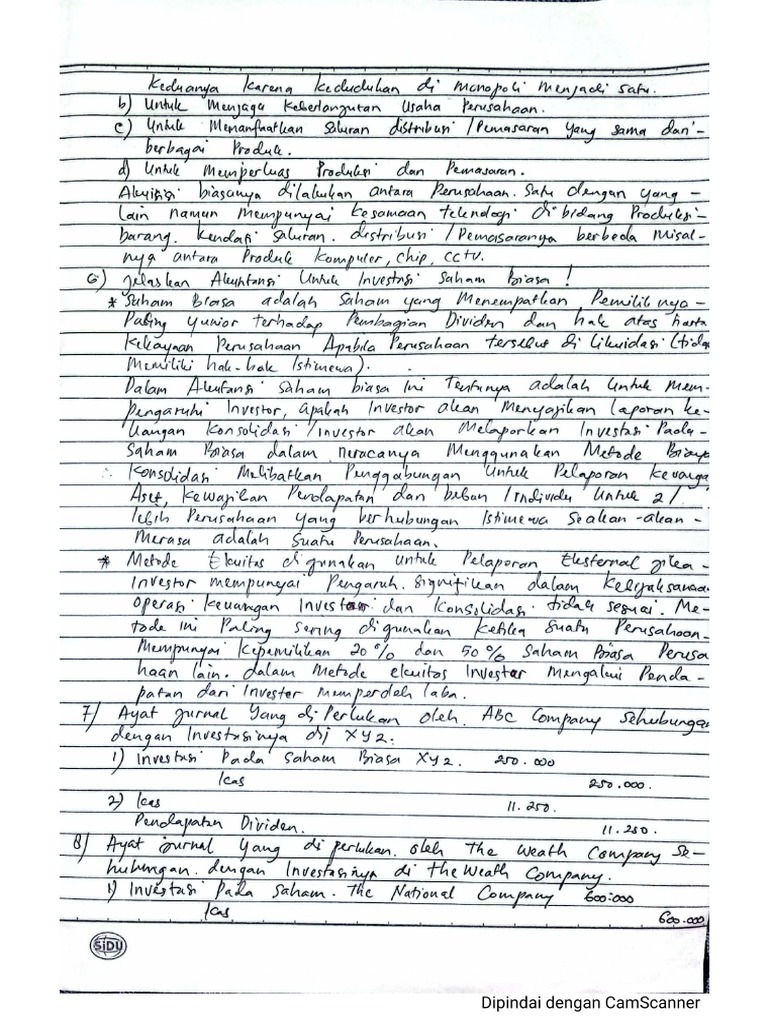 Keduanya karena kedudukan di monopoli menjadi satu.
b) Untuk Menjaga Keberlanjutan Usaha Perusahaan.
c) Untuk Memanfaatkan Saluran distribusi / Pemasaran yang sama dari-
berbagai Produk.
d) Untuk Memperluas Produksi dan Pemasaran.
Akuisisi biasanya dilakukan antara Perusahaan Satu dengan yang -
lain namun Mempunyai kesamaan teknologi di bidang Produksi-
barang. Kendati saluran distribusi / Pemasaranya berbeda Misal-
nya antara Produk Komputer, chip, CCTV.
6) Jelaskan Akuntansi Untuk Investasi Saham Biasa !
* Saham Biasa adalah Saham yang Menempatkan Pemiliknya -
Paling Yunior terhadap Pembagian Dividen dan hak atas harta
Kekayaan Perusahaan Apabila Perusahaan tersebut di Likuidasi (tida
Memiliki hak-hak Istimewa).
Dalam Akuntansi Saham biasa ini Tentunya adalah Untuk Mem-
pengaruhi Investor, apakah Investor akan Menyajikan laporan ke-
Uangan Konsolidasi / Investor akan Melaporkan Investasi Pada-
Saham Biasa dalam neracanya Menggunakan Metode Biaya
∴ Konsolidasi Melibatkan Penggabungan Untuk Pelaporan keuanga
Aset, Kewajiban Pendapatan dan beban / Individu Untuk 2 /
lebih Perusahaan yang berhubungan Istimewa Seakan-akan-
Merasa adalah Suatu Perusahaan.
* Metode Ekuitas digunakan untuk Pelaporan Eksternal jika -
Investor mempunyai Pengaruh Signifikan dalam Kebijaksanaa
Operasi Keuangan Investor dan Konsolidasi tidak sesuai. Me-
tode ini Paling sering digunakan Ketika Suatu Perusahaan-
Mempunyai Kepemilikan 20% dan 50% Saham Biasa Perusa
haan lain. dalam Metode ekuitas Investor Mengakui Penda-
patan dari Investor memperoleh laba.
7) Ayat Jurnal Yang di Perlukan oleh ABC Company Sehubungan
dengan Investasinya di XYZ:
1) Investasi Pada Saham Biasa XYZ. 250.000
Kas 250.000.
2) Kas 11.250.
Pendapatan Dividen. 11.250.
8) Ayat Jurnal Yang di perlukan oleh The Weath Company Se-
hubungan dengan Investasinya di the Weath Company.
1) Investasi Pada Saham The National Company 600.000
Kas 600.000
SIDU
Dipindai dengan CamScanner